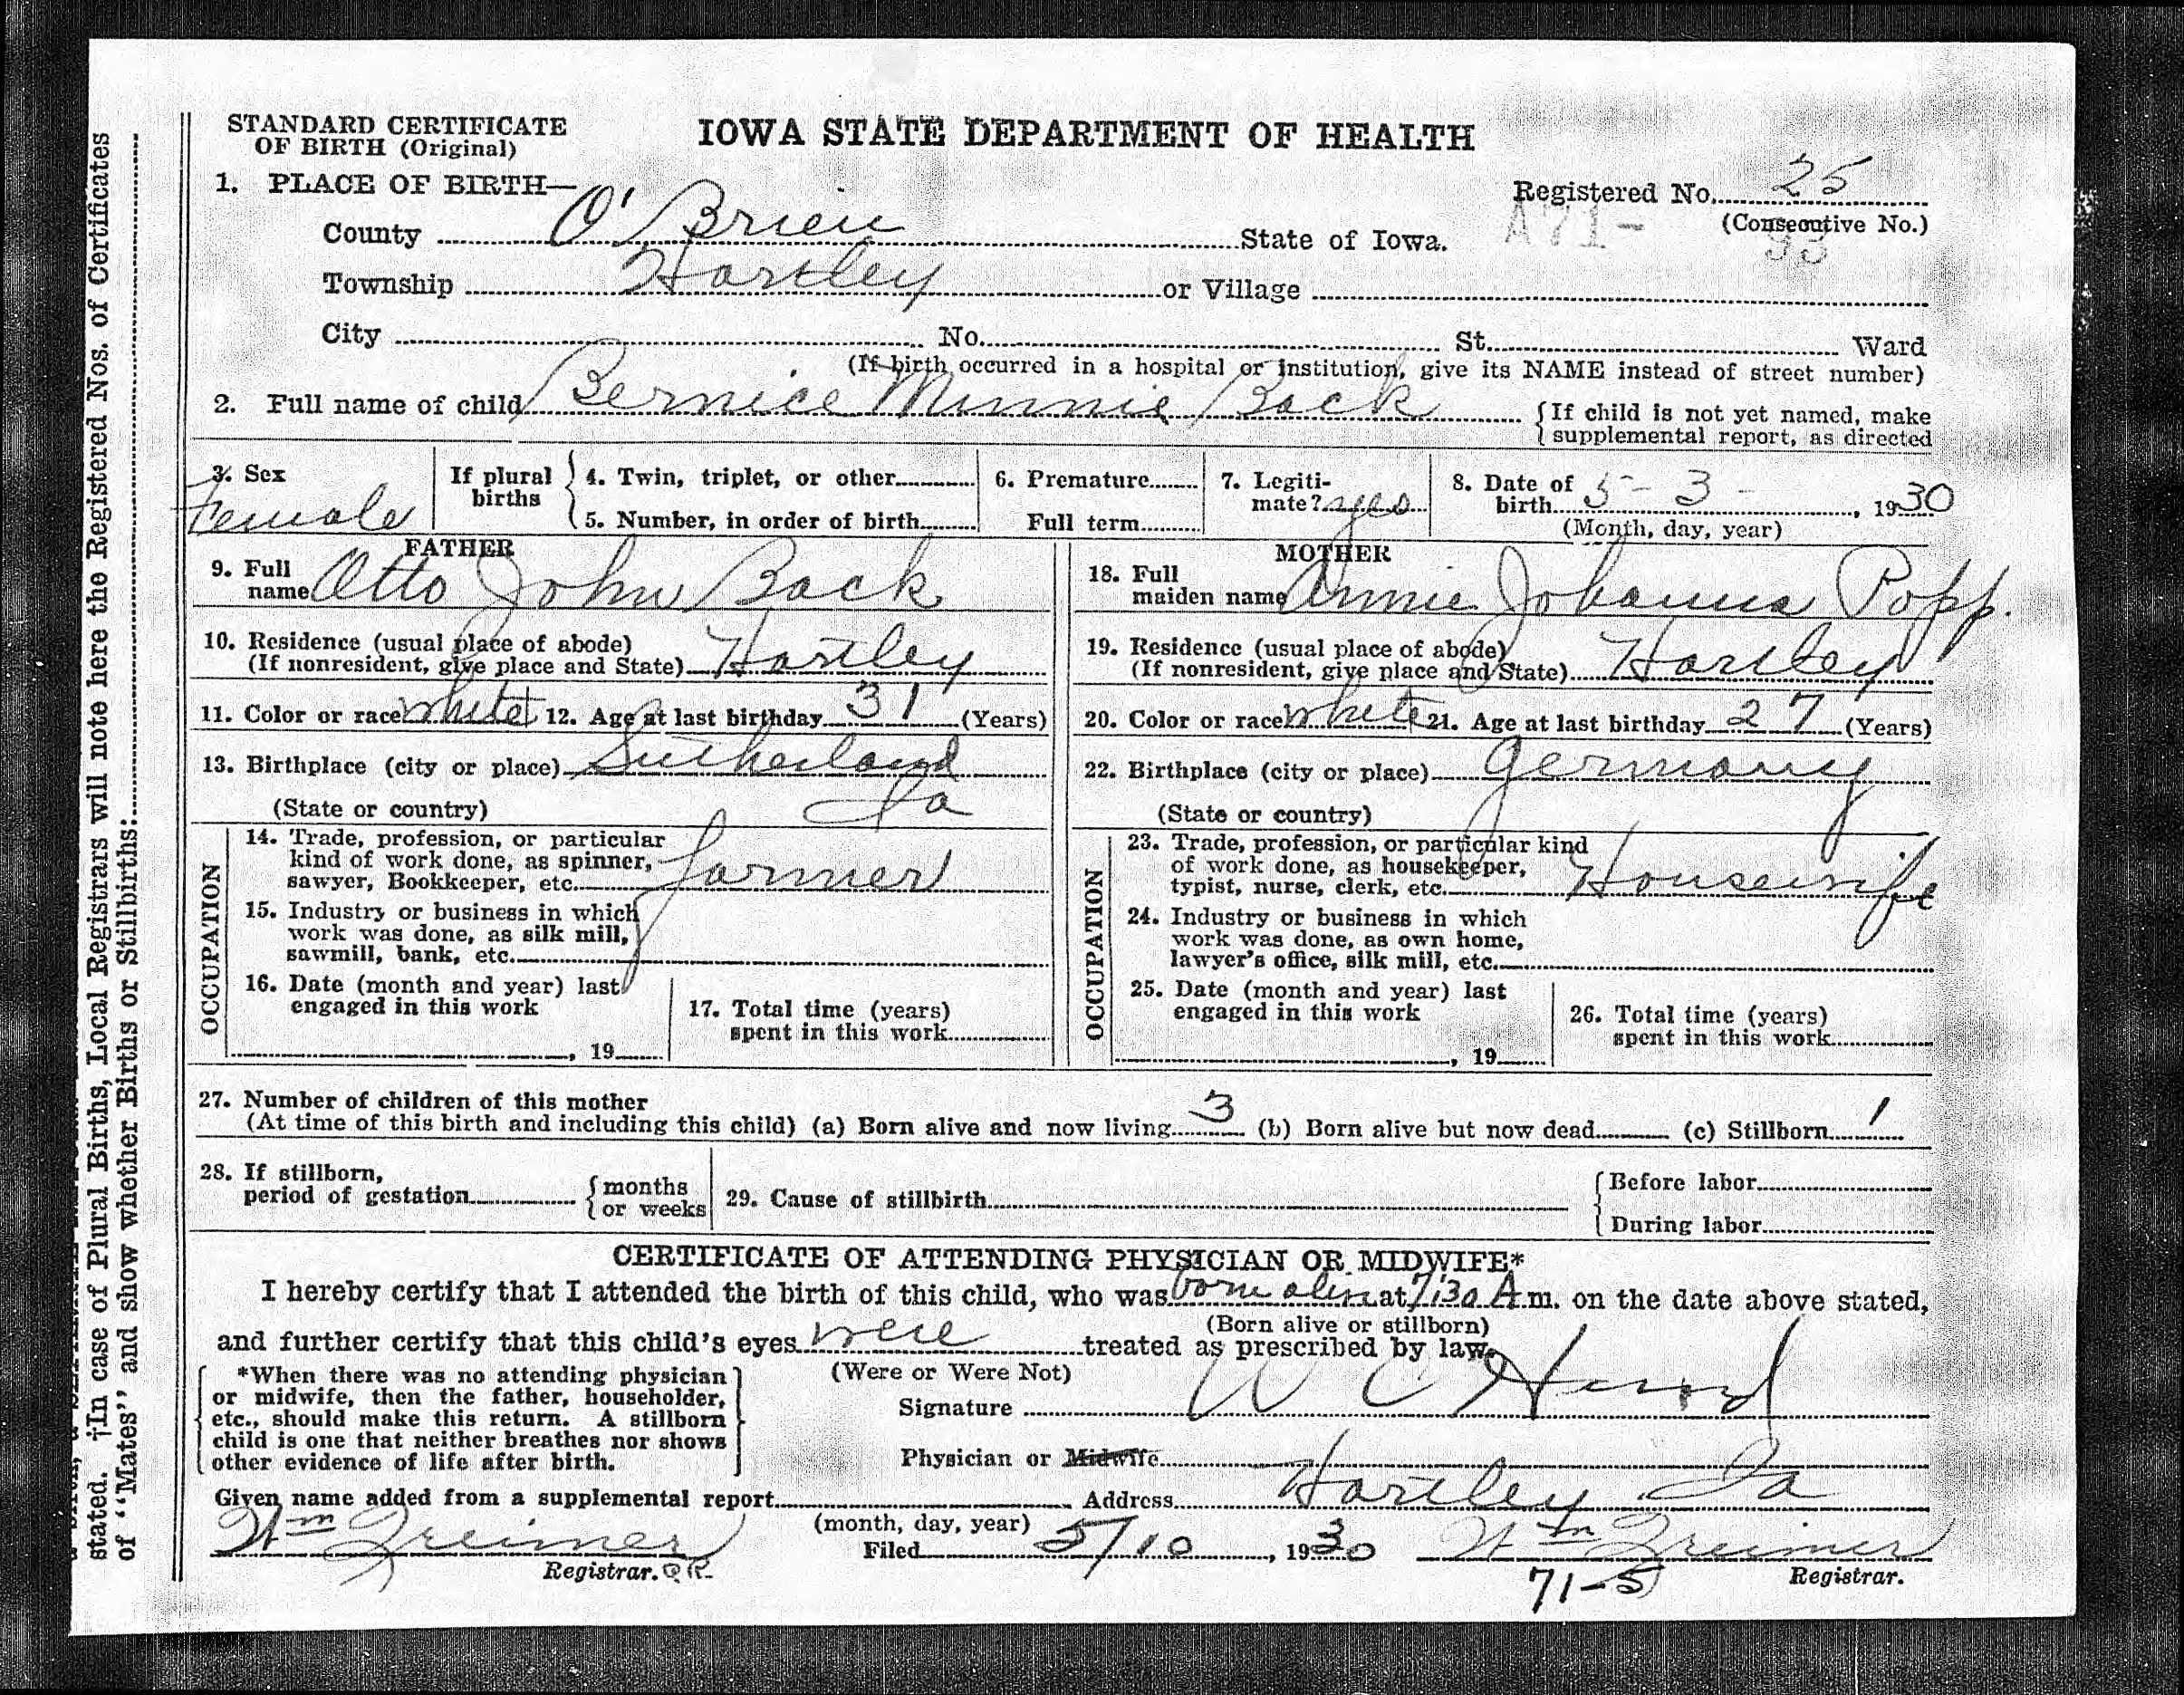 STANDARD CERTIFICATE
OF BIRTH (Original)
IOWA STATE DEPARTMENT OF HEALTH
1. PLACE OF BIRTH—
Registered No. 25
(Consecutive No.)
A71- 33
County O'Brien State of Iowa.
Township Hartley or Village
City No. St. Ward
(If birth occurred in a hospital or institution, give its NAME instead of street number)
2. Full name of child Bernice Minnie Back {If child is not yet named, make
supplemental report, as directed
3. Sex Female
If plural births
4. Twin, triplet, or other
5. Number, in order of birth
6. Premature
Full term
7. Legitimate? yes
8. Date of birth 5-3-, 1930
(Month, day, year)
FATHER
9. Full name Otto John Back
10. Residence (usual place of abode)
(If nonresident, give place and State) Hartley
11. Color or race white 12. Age at last birthday 31 (Years)
13. Birthplace (city or place) Sutherland
(State or country) Ia
OCCUPATION
14. Trade, profession, or particular
kind of work done, as spinner,
sawyer, Bookkeeper, etc. farmer
15. Industry or business in which
work was done, as silk mill,
sawmill, bank, etc.
16. Date (month and year) last
engaged in this work
, 19
17. Total time (years)
spent in this work
MOTHER
18. Full
maiden name Annie Johanna Popp.
19. Residence (usual place of abode)
(If nonresident, give place and State) Hartley
20. Color or race white 21. Age at last birthday 27 (Years)
22. Birthplace (city or place) Germany
(State or country)
OCCUPATION
23. Trade, profession, or particular kind
of work done, as housekeeper,
typist, nurse, clerk, etc. Housewife
24. Industry or business in which
work was done, as own home,
lawyer's office, silk mill, etc.
25. Date (month and year) last
engaged in this work
, 19
26. Total time (years)
spent in this work
27. Number of children of this mother
(At time of this birth and including this child) (a) Born alive and now living 3 (b) Born alive but now dead (c) Stillborn 1
28. If stillborn,
period of gestation {months
or weeks
29. Cause of stillbirth
{Before labor
During labor
CERTIFICATE OF ATTENDING PHYSICIAN OR MIDWIFE*
I hereby certify that I attended the birth of this child, who was born alive at 7:30 A.m. on the date above stated,
(Born alive or stillborn)
and further certify that this child's eyes were treated as prescribed by law.
(Were or Were Not)
*When there was no attending physician
or midwife, then the father, householder,
etc., should make this return. A stillborn
child is one that neither breathes nor shows
other evidence of life after birth.
Signature W C Hand
Physician or Midwife
Given name added from a supplemental report Address Hartley Ia
(month, day, year)
Wm Treimer
Registrar. QR
Filed 5/10, 1930 Wm Treimer
71-5 Registrar.
stated. †In case of Plural Births, Local Registrars will note here the Registered Nos. of Certificates
of "Mates" and show whether Births or Stillbirths: